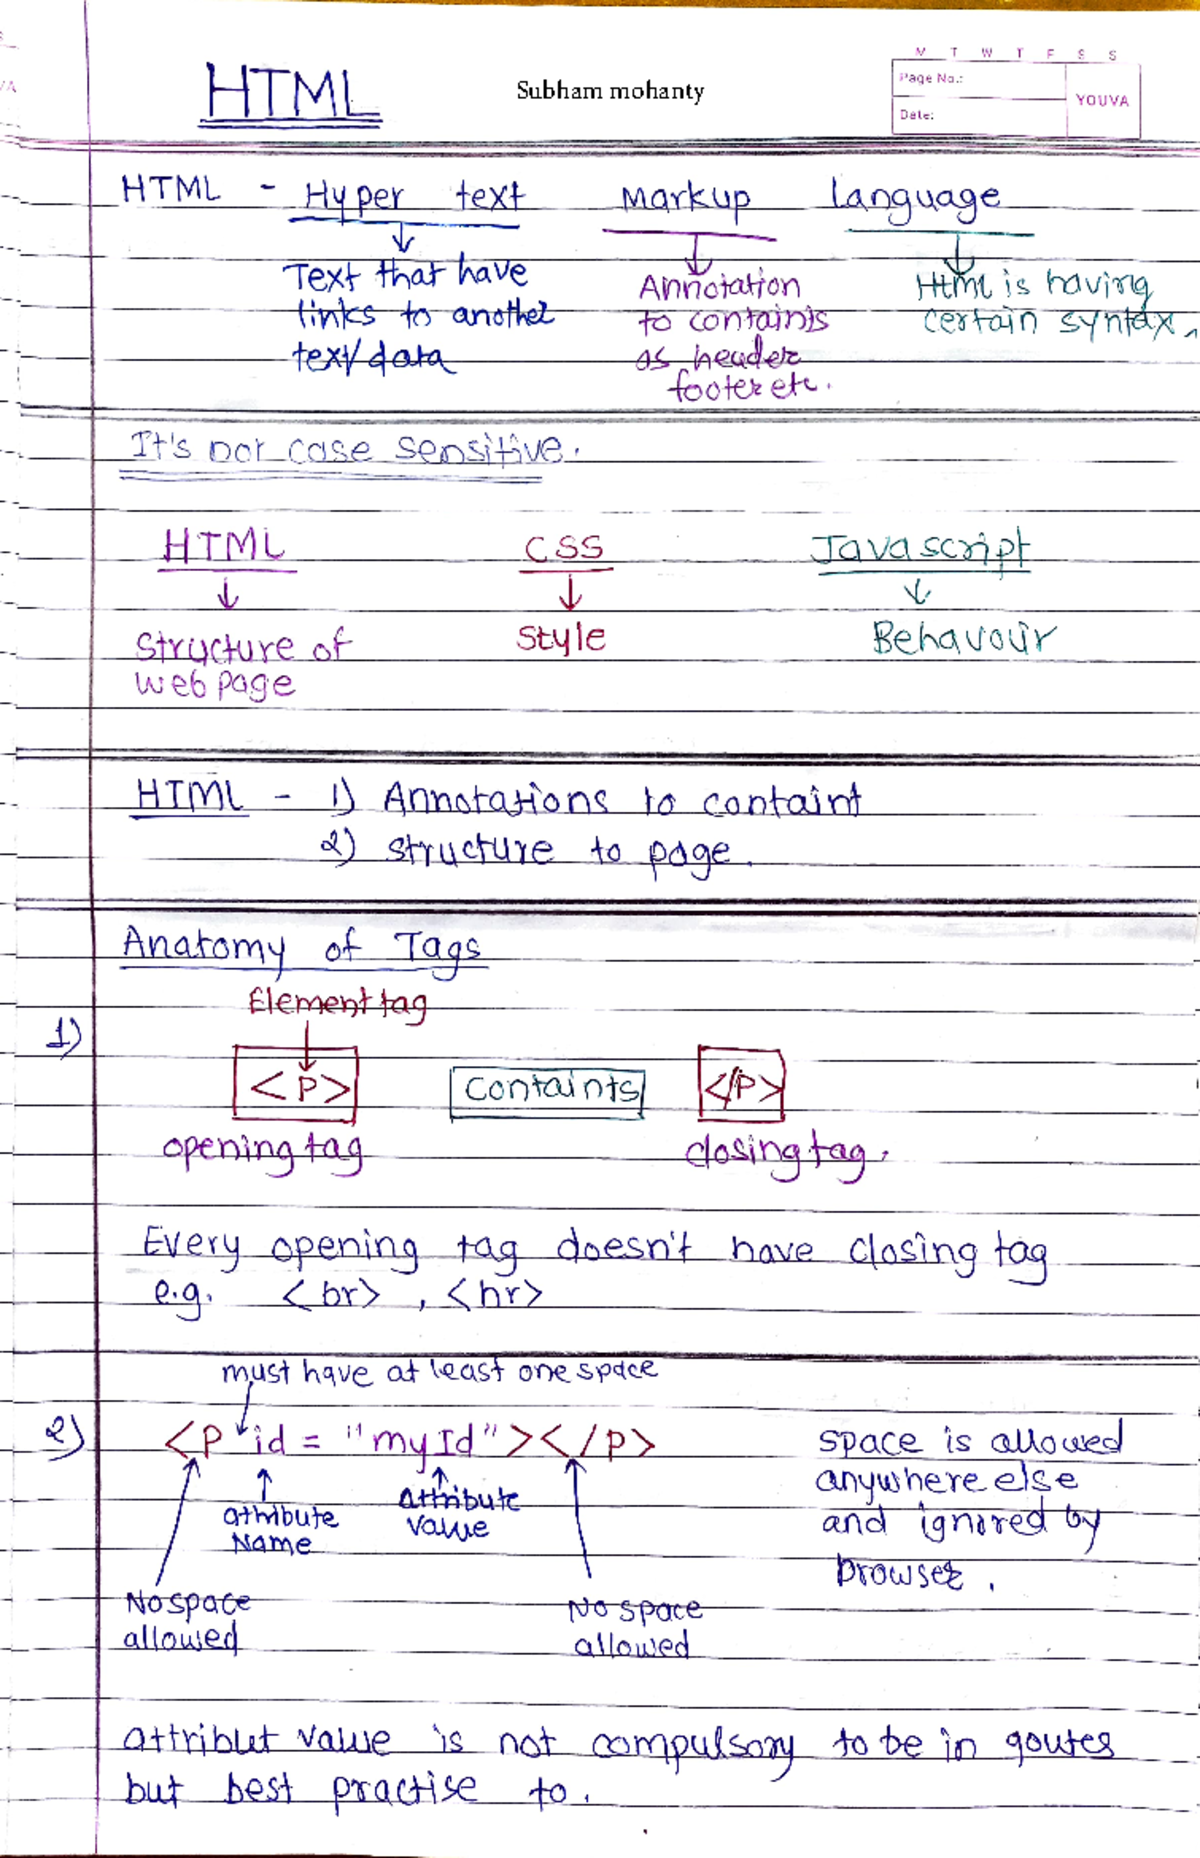 M T W T F S S
HTML
Subham mohanty
Page No.:
Date:
YOUVA
HTML - Hyper text Markup language
Text that have
links to another
text/data
Annotation
to containts
as header
footer etc.
Html is having
certain syntax,
It's not case sensitive.
HTML CSS Javascript
Structure of
web page
Style
Behavour
HTML - 1) Annotations to containt
2) structure to page.
Anatomy of Tags
Element tag
1)
<P> Containts </P>
opening tag closing tag.
Every opening tag doesn't have closing tag
e.g. <br> , <hr>
must have at least one space
2) <P id = "my Id"></p>
attribute
Name
attribute
value
No space
allowed
No space
allowed
space is allowed
anywhere else
and ignored by
browser.
attribut value is not compulsory to be in qoutes
but best practise to.